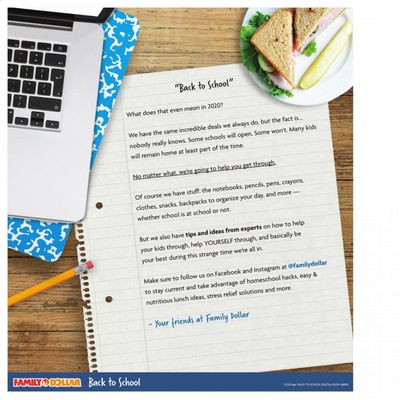 "Back to School"
What does that even mean in 2020?
We have the same incredible deals we always do, but the fact is...
nobody really knows. Some schools will open. Some won't. Many kids
will remain home at least part of the time.
No matter what, we're going to help you get through.
Of course we have stuff: the notebooks, pencils, pens, crayons,
clothes, snacks, backpacks to organize your day, and more —
whether school is at school or not.
But we also have tips and ideas from experts on how to help
your kids through, help YOURSELF through, and basically be
your best during this strange time we're all in.
Make sure to follow us on Facebook and Instagram at @familydollar
to stay current and take advantage of homeschool hacks, easy &
nutritious lunch ideas, stress relief solutions and more.
- Your friends at Family Dollar
FAMILY DOLLAR Back to School